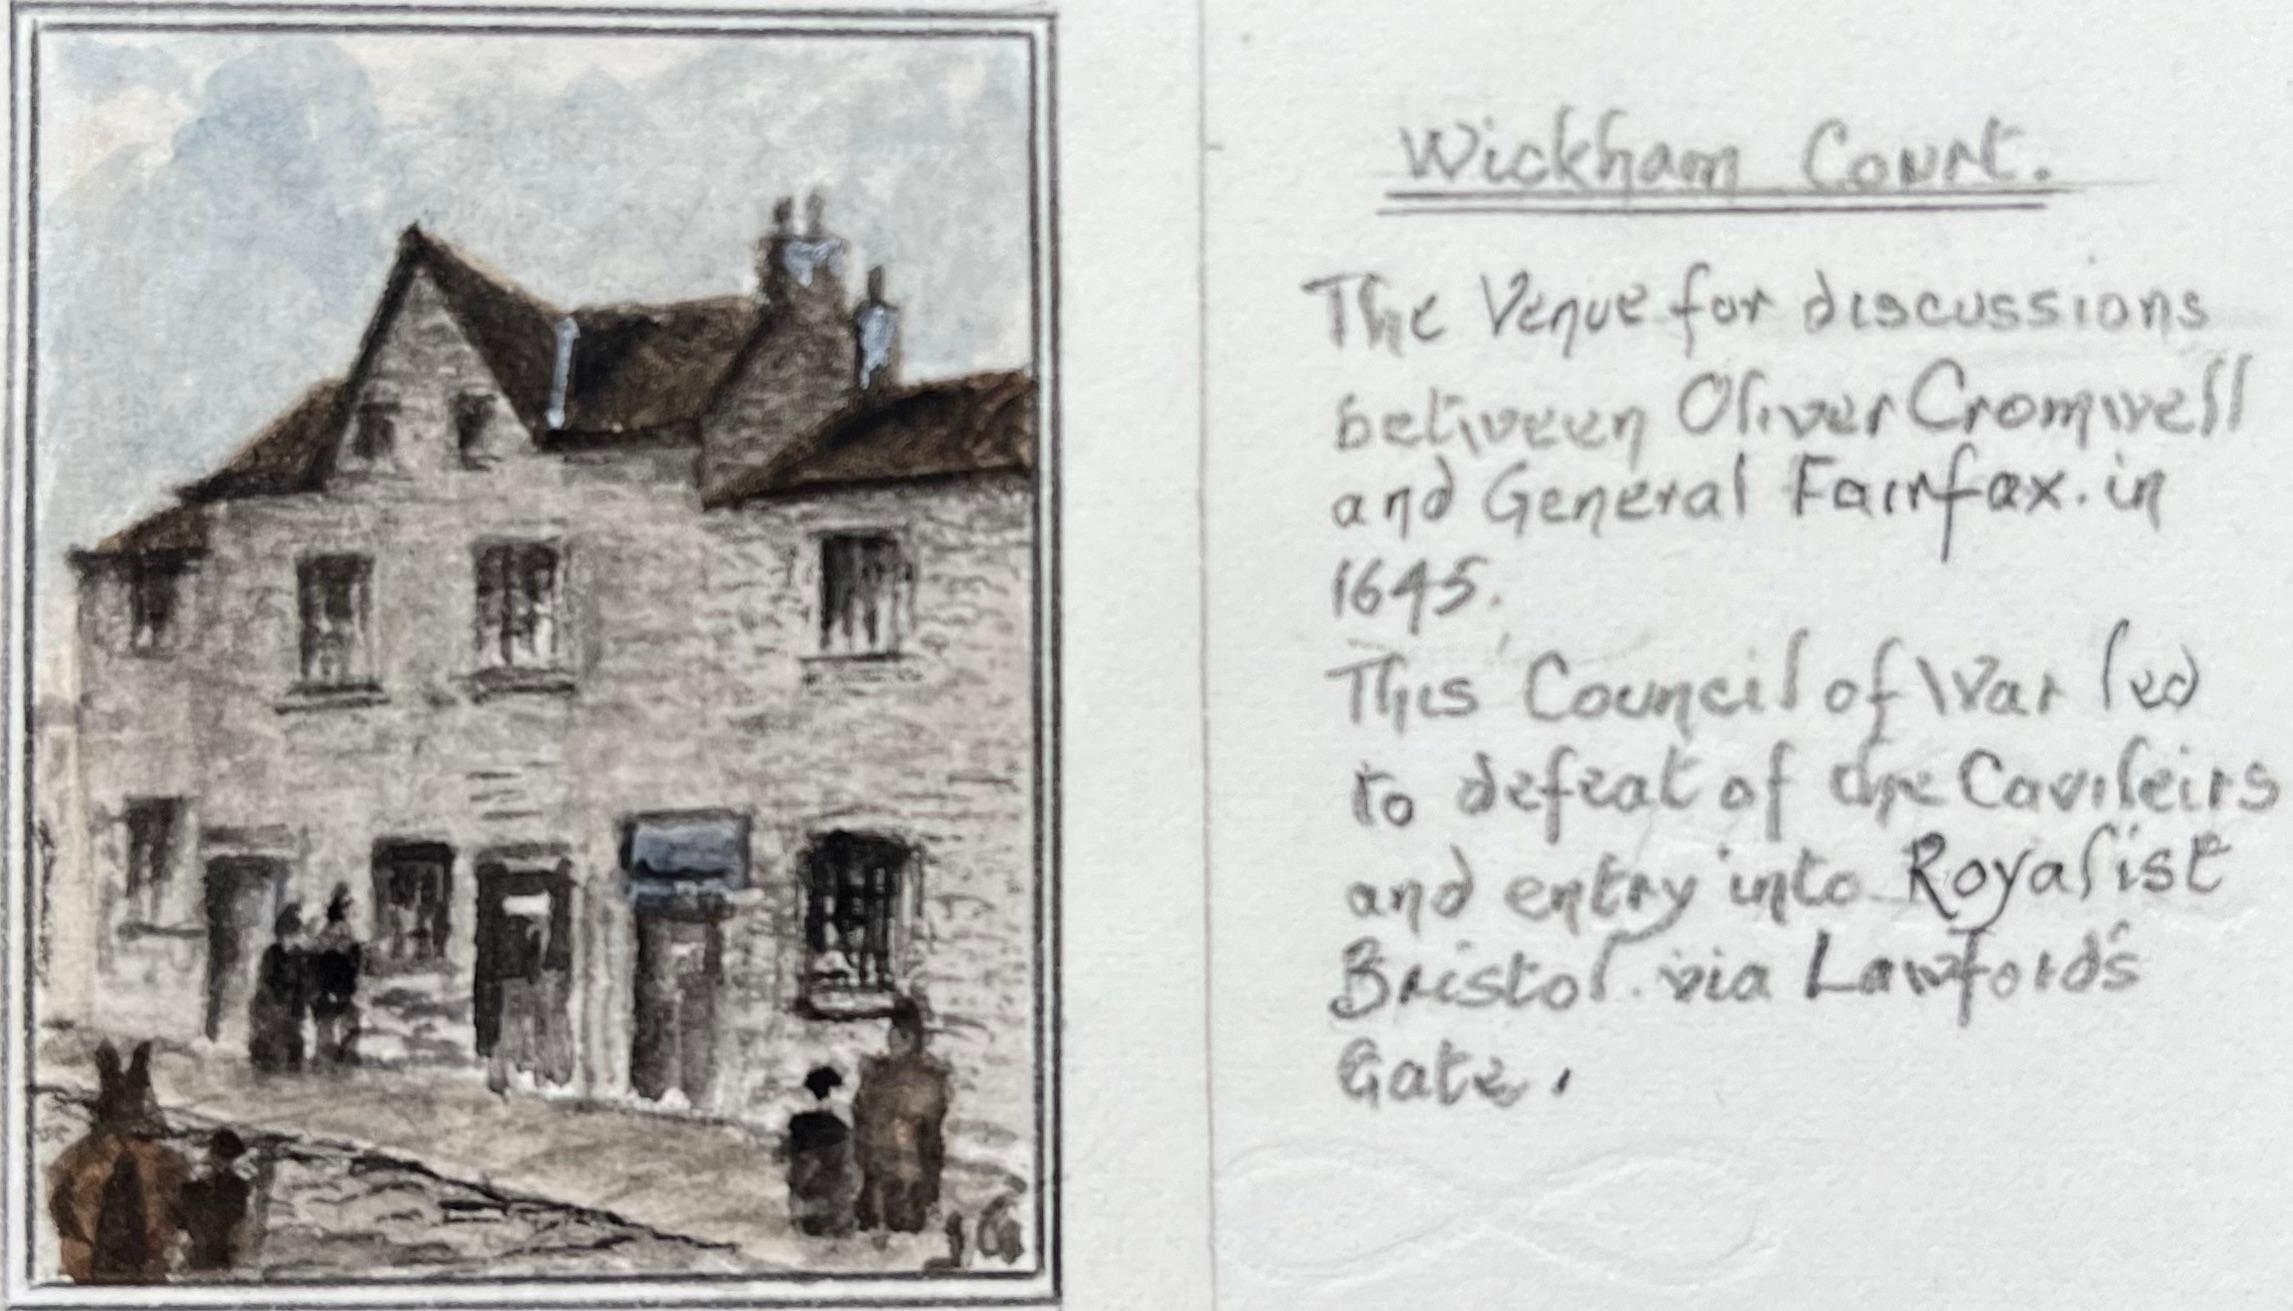 Wickham Court.
The Venue for discussions
between Oliver Cromwell
and General Fairfax. in
1645.
This Council of War led
to defeat of the Cavileirs
and entry into Royalist
Bristol. via Lawford's
Gate.
JG